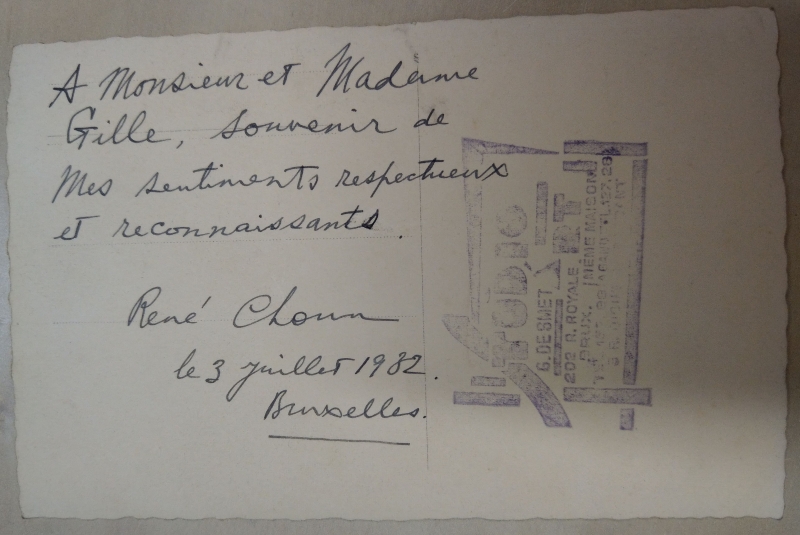 A Monsieur et Madame
Gille, souvenir de
Mes sentiments respectueux
et reconnaissants.
René Choun
le 3 juillet 1932.
Bruxelles.
STUDIO
G. DESMET ART
202 R. ROYALE
BRUX. MÊME MAISON